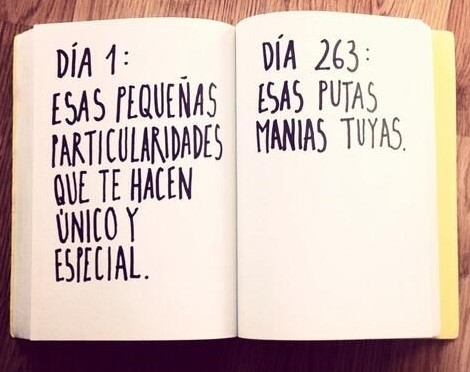 DÍA 1:
ESAS PEQUEÑAS
PARTICULARIDADES
QUE TE HACEN
ÚNICO Y
ESPECIAL.
DÍA 263:
ESAS PUTAS
MANIAS TUYAS.